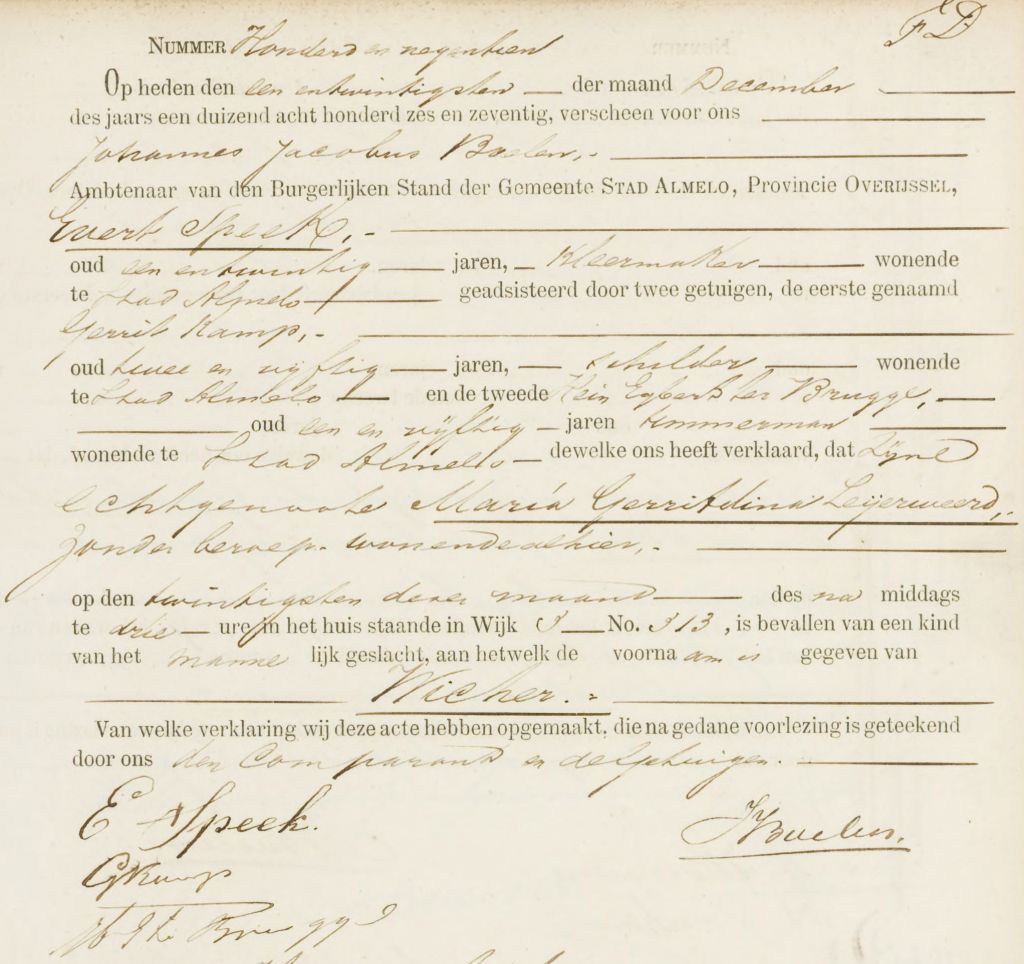 NUMMER Honderd en negentien
Op heden den een entwintigsten der maand December
des jaars een duizend acht honderd zes en zeventig, verscheen voor ons
Johannes Jacobus
Ambtenaar van den Burgerlijken Stand der Gemeente STAD ALMELO, Provincie OVERIJSSEL,
Evert Speek,
oud een entwintig jaren, Kleermaker wonende
te Stad Almelo geadsisteerd door twee getuigen, de eerste genaamd
Gerrit Kamp,
oud twee en vijftig jaren, schilder wonende
te Stad Almelo en de tweede Hein Egbert ter Brugge,
oud een en vijftig jaren timmerman
wonende te Stad Almelo dewelke ons heeft verklaard, dat Zijne
echtgenoote Maria Gerritdina Leijerweerd,
zonder beroep wonende alhier,
op den twintigsten dezer maand des na middags
te drie ure in het huis staande in Wijk No. 313, is bevallen van een kind
van het manne lijk geslacht, aan hetwelk de voorna am is gegeven van
Wicher.
Van welke verklaring wij deze acte hebben opgemaakt, die na gedane voorlezing is geteekend
door ons den Comparant en de getuigen.
E Speek.
GKamp
Brugge